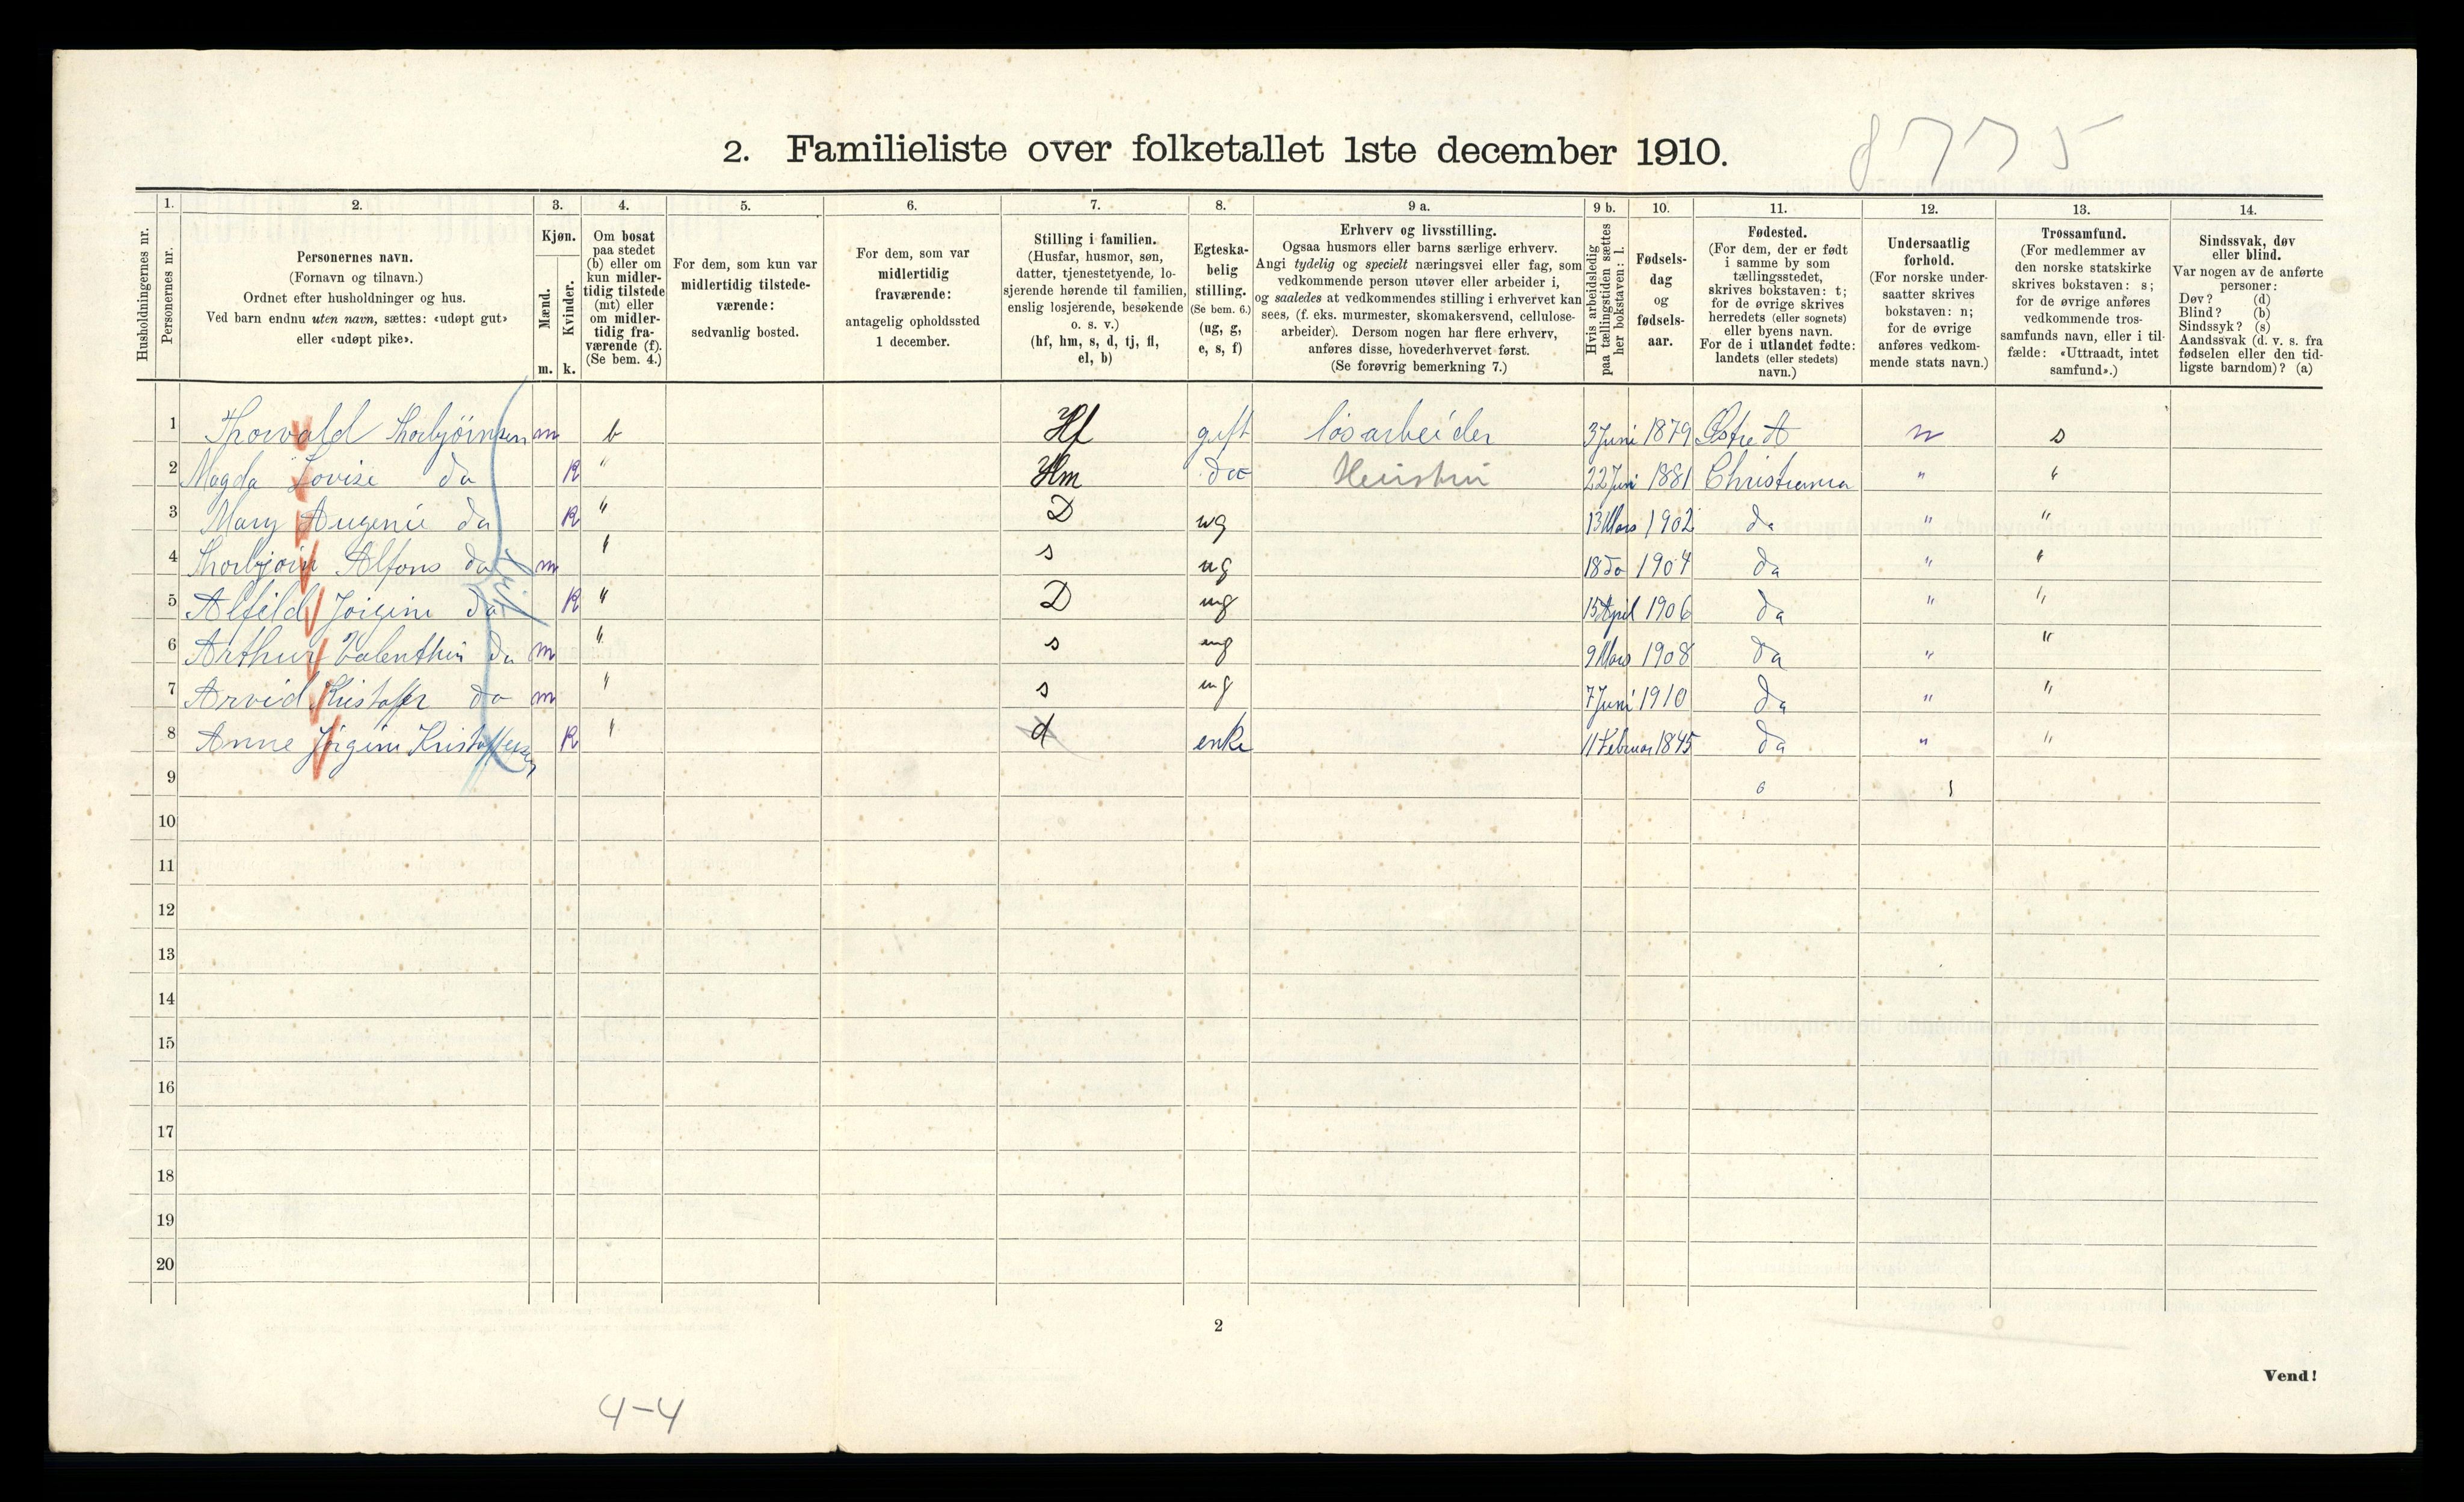 8775
2. Familieliste over folketallet 1ste december 1910.
Husholdningernes nr.
1. Personernes nr.
2. Personernes navn. (Fornavn og tilnavn.) Ordnet efter husholdninger og hus. Ved barn endnu uten navn, sættes: «udøpt gut» eller «udøpt pike».
3. Kjøn. Mænd. m. Kvinder. k.
4. Om bosat paa stedet (b) eller om kun midlertidig tilstede (mt) eller om midlertidig fraværende (f). (Se bem. 4.)
5. For dem, som kun var midlertidig tilstedeværende: sedvanlig bosted.
6. For dem, som var midlertidig fraværende: antagelig opholdssted 1 december.
7. Stilling i familien. (Husfar, husmor, søn, datter, tjenestetyende, losjerende hørende til familien, enslig losjerende, besøkende o. s. v.) (hf, hm, s, d, tj, fl, el, b)
8. Egteskabelig stilling. (Se bem. 6.) (ug, g, e, s, f)
9 a. Erhverv og livsstilling. Ogsaa husmors eller barns særlige erhverv. Angi tydelig og specielt næringsvei eller fag, som vedkommende person utøver eller arbeider i, og saaledes at vedkommendes stilling i erhvervet kan sees, (f. eks. murmester, skomakersvend, cellulosearbeider). Dersom nogen har flere erhverv, anføres disse, hovederhvervet først. (Se forøvrig bemerkning 7.)
9 b. Hvis arbeidsledig paa tællingstiden sættes her bokstaven: l.
10. Fødselsdag og fødselsaar.
11. Fødested. (For dem, der er født i samme by som tællingsstedet, skrives bokstaven: t; for de øvrige skrives herredets (eller sognets) eller byens navn. For de i utlandet fødte: landets (eller stedets) navn.)
12. Undersaatlig forhold. (For norske undersaatter skrives bokstaven: n; for de øvrige anføres vedkommende stats navn.)
13. Trossamfund. (For medlemmer av den norske statskirke skrives bokstaven: s; for de øvrige anføres vedkommende trossamfunds navn, eller i tilfælde: «Uttraadt, intet samfund».)
14. Sindssvak, døv eller blind. Var nogen av de anførte personer: Døv? (d) Blind? (b) Sindssyk? (s) Aandssvak (d. v. s. fra fødselen eller den tidligste barndom)? (a)
1 Thorvald Thorbjørnsen m b Hf gift løsarbeider 3 Juni 1879 Østre A n s
2 Magda Lovise do K " Hm do 22 Juni 1881 Christiania " "
3 Mary Augenie do K " D ug 13 Mars 1902 do " "
4 Thorbjørn Alfons do m " s ug 18 do 1904 do " "
5 Alfild Jørgine do K " D ug 15 April 1906 do " "
6 Arthur Valenthin do m " s ug 9 Mars 1908 do " "
7 Arvid Kristoffer do m " s ug 7 Juni 1910 do " "
8 Anne Jørgine Kristoffersen K " d enke 11 Februar 1845 do " "
9
10
11
12
13
14
15
16
17
18
19
20
2
Vend!
4-4